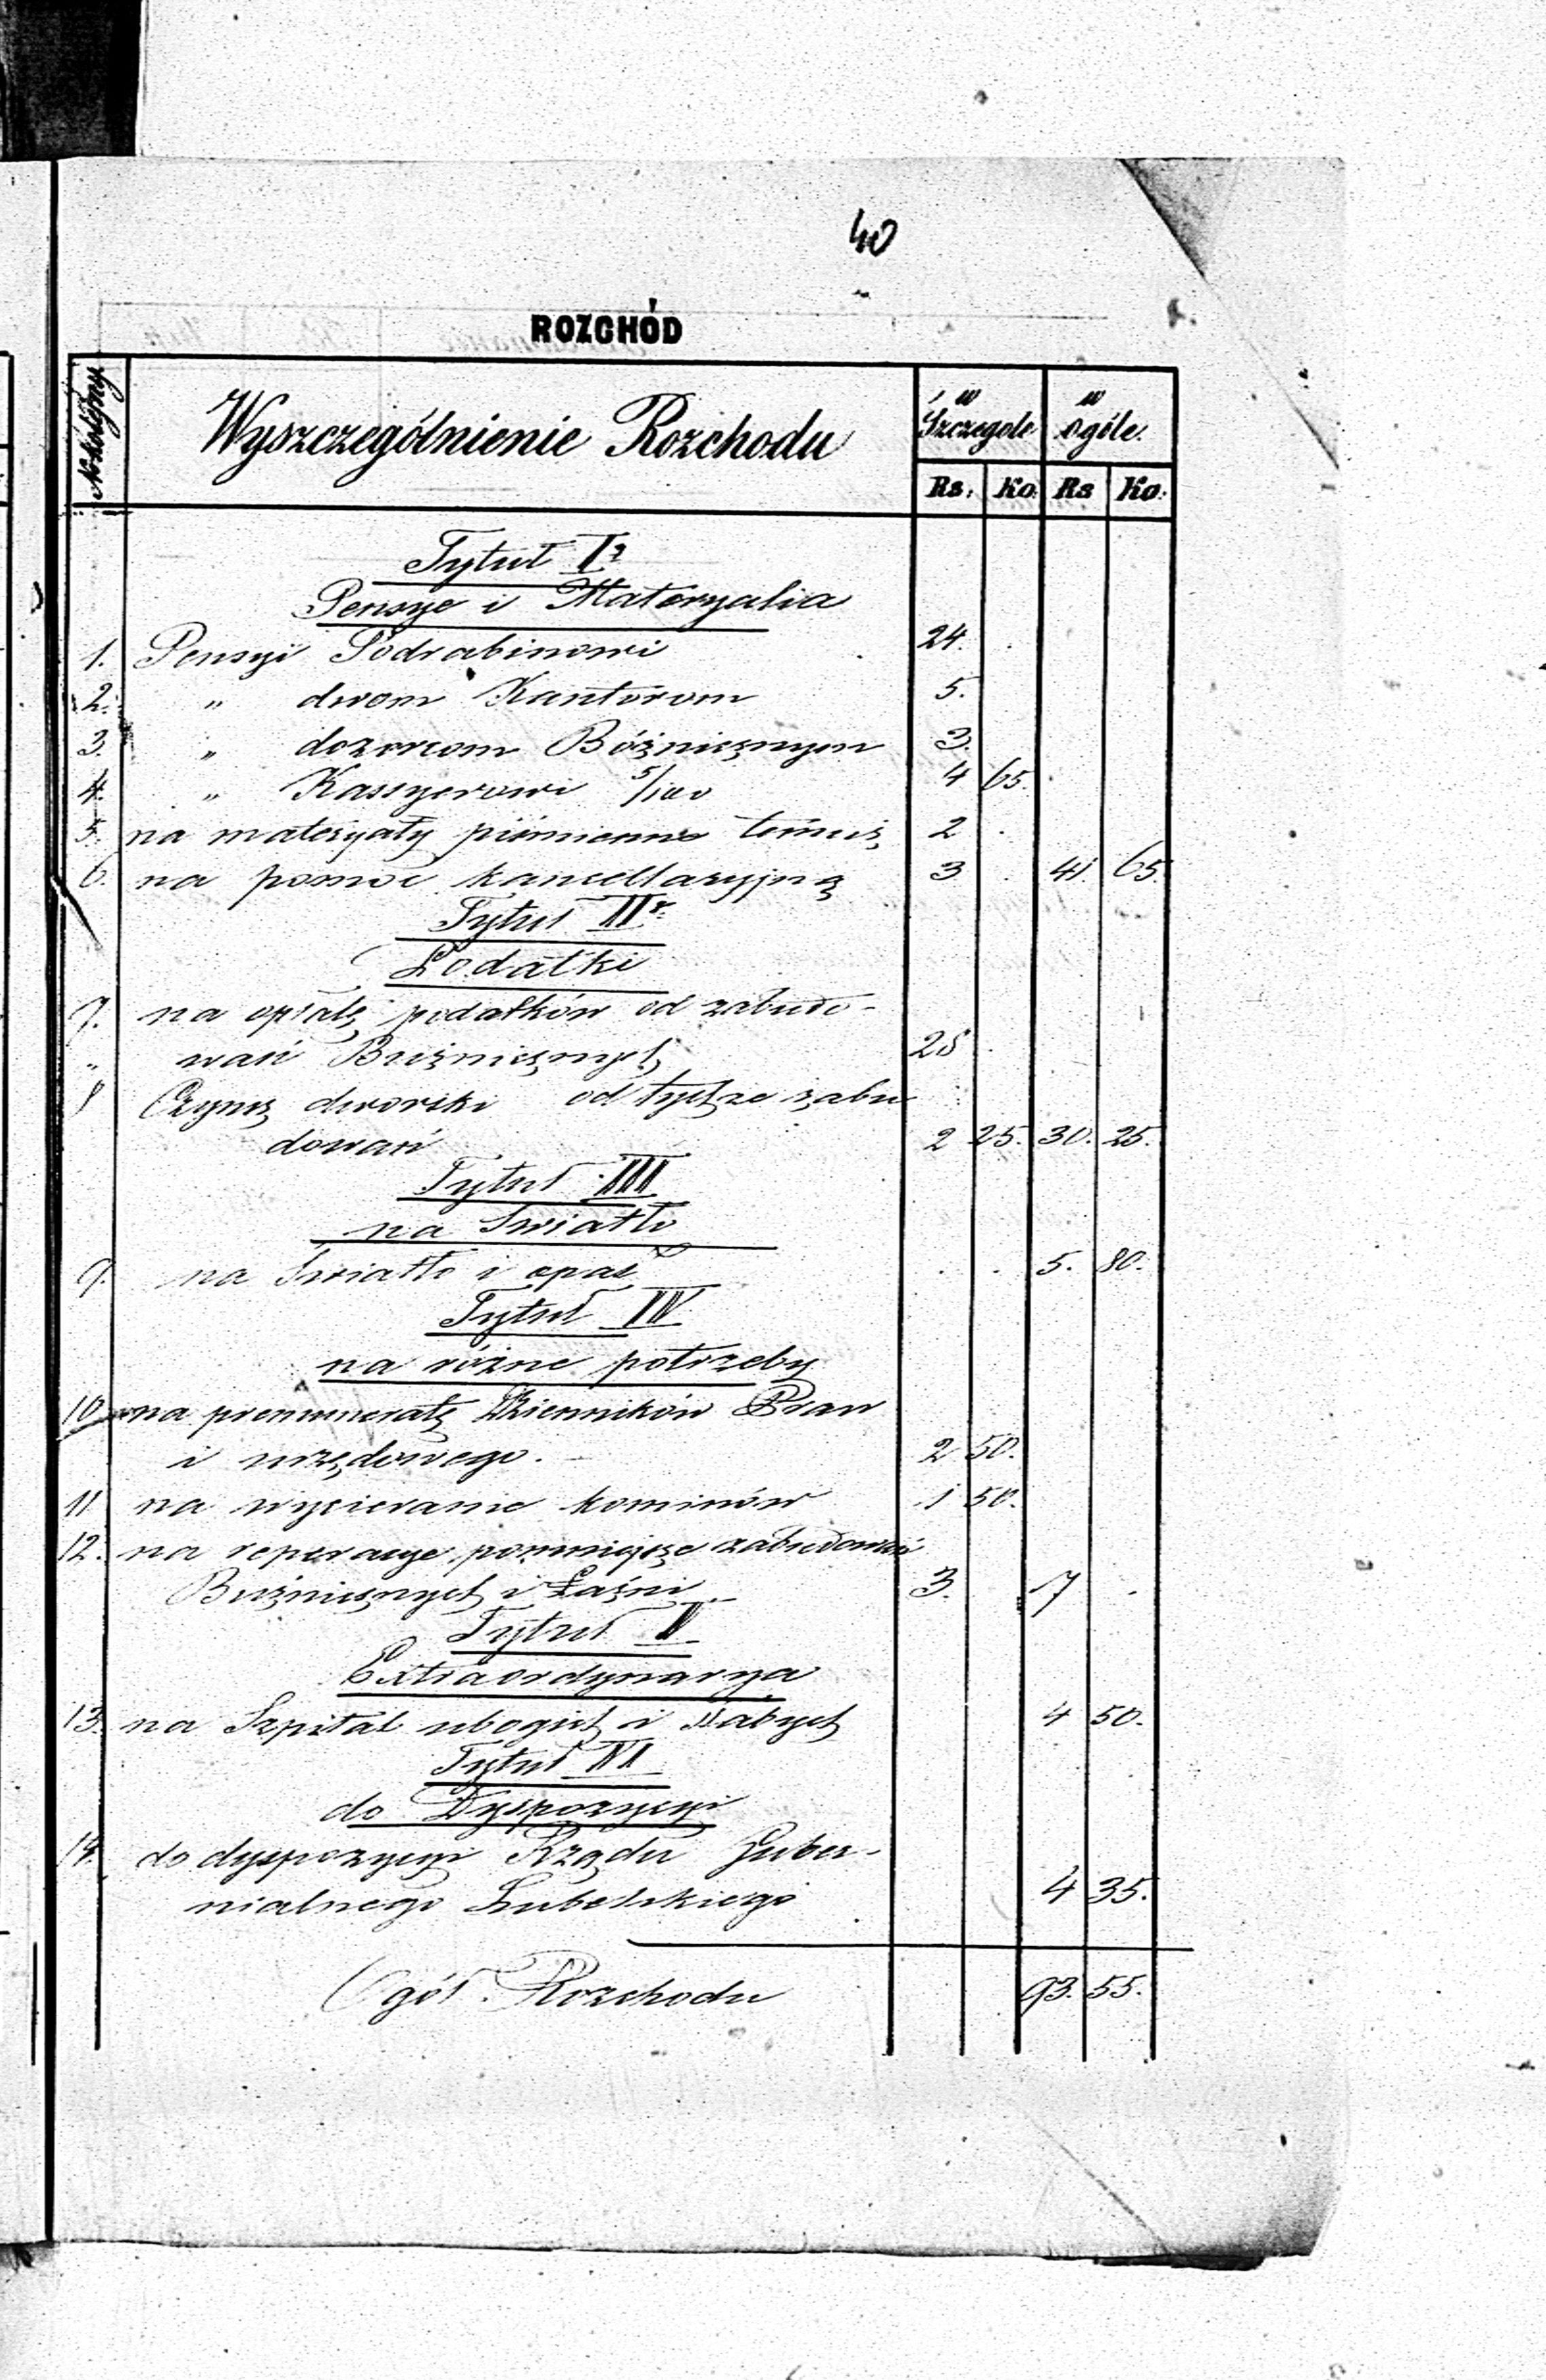 40
ROZCHÓD
No kolejny
Wyszczególnienie Rozchodu
w Szczegole
w ogóle.
Rs. Ko. Rs Ko.
Tytuł I.
Pensye i Materyalia
1. Pensyi Podrabinowi 24. .
2. " dwom Kantorom 5.
3. " dozorcom Bóżnicznym 3.
4. " Kassyerowi 5/100 4 65.
5. na materyały piśmienne 2 .
6. na pomoc kancellaryjną 3 . 41. 65.
Tytuł II
Podatki
7. na opłatę podatków od zabudo-
" wań Bużnicznych 28 .
8 Czynsz dworski od tychże zabu
dowań 2 25. 30. 25.
Tytuł III
na Swiatło
9. na Swiatło i opał . . 5. 80.
Tytuł IV
na różne potrzeby
10 na prenumeratę Dzienników Praw
i urzędowego. 2 50.
11 na wycieranie kominów 1 50.
12. na reperacye pomniejsze zabudowań
Bużnicznych i Łaźni 3. 7 .
Tytuł V
Extraordynarya
13. na Szpital ubogich i słabych 4 50.
Tytuł VI
do Dyspozycyi
14. do dyspozycyi Rządu Guber-
nialnego Lubelskiego 4 35.
Ogół Rozchodu 93. 55.